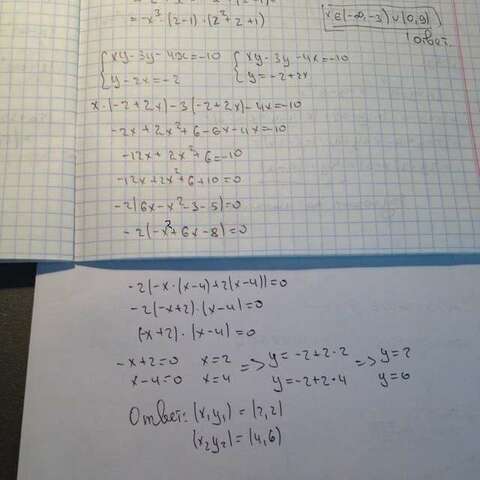 = x³·(2-1)·(2²+2+1)
x∈(-∞,-3)∪(0,9)
Ответ.
{xy-3y-4x=-10 {xy-3y-4x=-10
{y-2x=-2 {y=-2+2x
x·(-2+2x)-3(-2+2x)-4x=-10
-2x+2x²+6-6x-4x=-10
-12x+2x²+6=-10
-12x+2x²+6+10=0
-2(6x-x²-3-5)=0
-2(-x²+6x-8)=0
-2(-x·(x-4)+2(x-4))=0
-2(-x+2)·(x-4)=0
(-x+2)·(x-4)=0
-x+2=0 x=2 => y=-2+2·2 => y=2
x-4=0 x=4 y=-2+2·4 y=6
Ответ: (x₁y₁)=(2,2)
(x₂y₂)=(4,6)